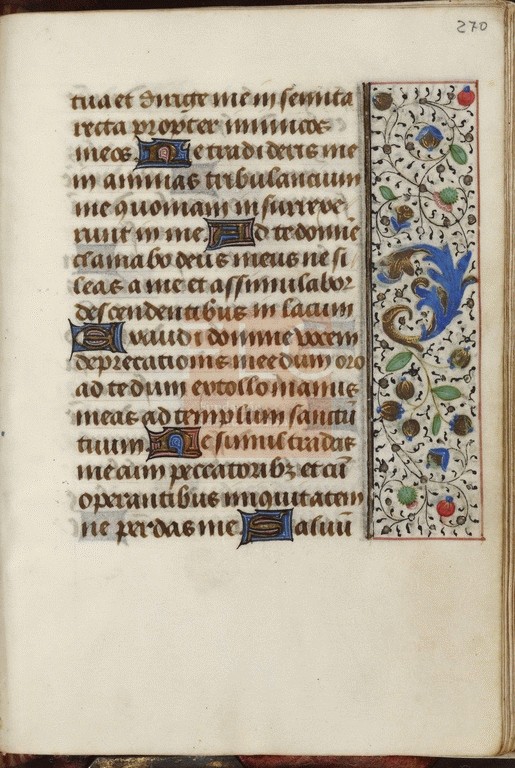 270
tua et dirige me in semita
recta propter inimicos
meos. Ne tradideris me
in animas tribulancium
me quoniam insurrexe-
runt in me Ad te domine
clamabo deus meus ne si
leas a me et assimilabor
descendentibus in lacum
Exaudi domine vocem
deprecationis mee dum oro
ad te dum extollo manus
meas ad templum sanctū
tuum Ne simul tradas
me cum peccatoribꝫ et cū
operantibus iniquitatem
ne perdas me Saluū